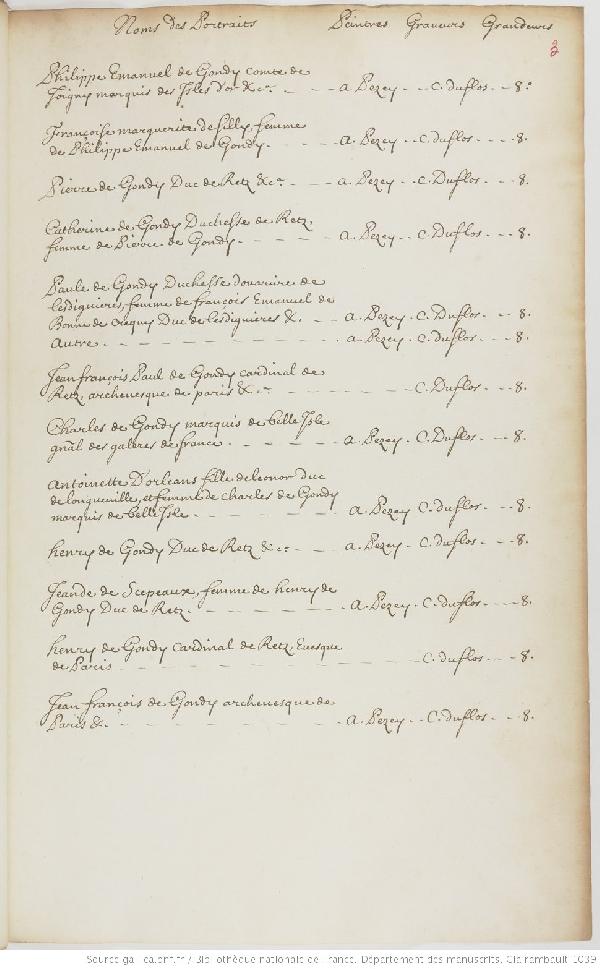 Noms des Portraits Peintres Graveurs Grandeurs
3
Philippe Emanuel de Gondy comte de
Joigny marquis des Isles d'or &c.ª - - - a Pezey - - C. duflos - - 8.º
Françoise marguerite de silly, femme
de Philippe Emanuel de Gondy. - - - - a. Pezey - - C. duflos - - - 8.
Pierre de Gondy Duc de Retz &c.ª - - - a. Pezey - - C. Duflos - - - 8.
Catherine de Gondy Duchesse de Retz,
femme de Pierre de Gondy. - - - - - a. Pezey - - C. Duflos - - - 8.
Paule de Gondy Duchesse douairire de
lesdiguieres, femme de françois Emanuel de
Bonne de Crequy Duc de lesdiguieres &. - - a. Pezey . C. Duflos - - - 8.
Autre. - - - - - - - - - - a. Pezey . C. duflos - - - 8.
Jean françois Paul de Gondy cardinal de
Retz, archeuesque de paris &c.ª - - - - - - C. Duflos - - - 8.
Charles de Gondy marquis de belle Isle
gnāl des galeres de france. - - - - - a. Pezey . C. Duflos - - - 8.
Antoinette D'orleans fille de leonor duc
de longueuille, et femme de Charles de Gondy
marquis de belle Isle - - - - - - - a. Pezey . C. duflos - - - 8.
henry de Gondy Duc de Retz &c. - - - a. Pezey . C. duflos - - - 8.
Jeande de Scepeaux, femme de henry de
Gondy Duc de Retz. - - - - - - - a. Pezey . C. duflos. - - - 8.
henry de Gondy cardinal de Retz, Euesque
de Paris - - - - - - - - - - - - C. duflos - - - 8.
Jean françois de Gondy archeuesque de
Paris &c. - - - - - - - - - - a. Pezey - - C. duflos - - - 8.
Source gallica.bnf.fr / Bibliothèque nationale de France. Département des manuscrits. Clairambault 1039